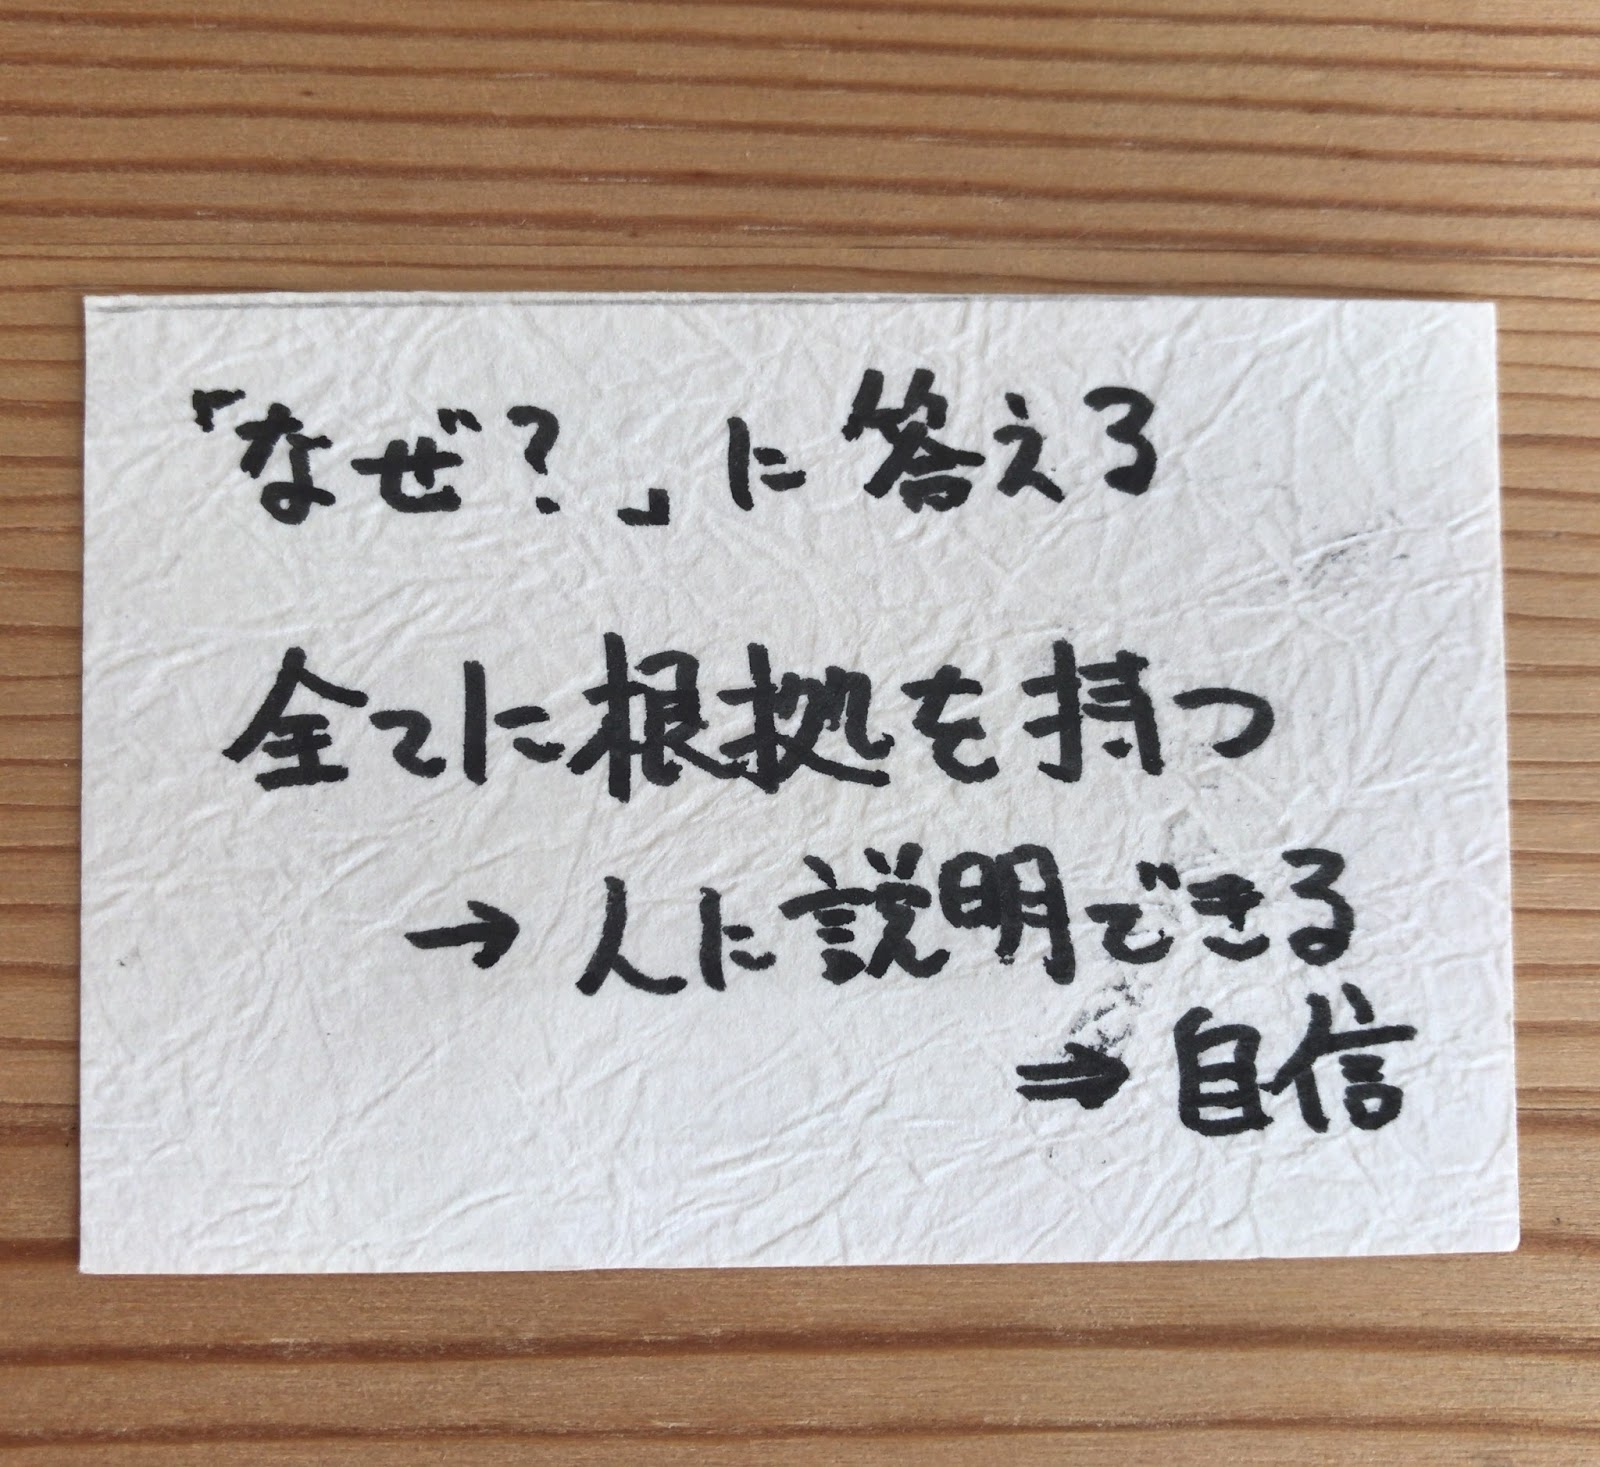 「なぜ?」に答える
全てに根拠を持つ
→ 人に説明できる
⇒ 自信